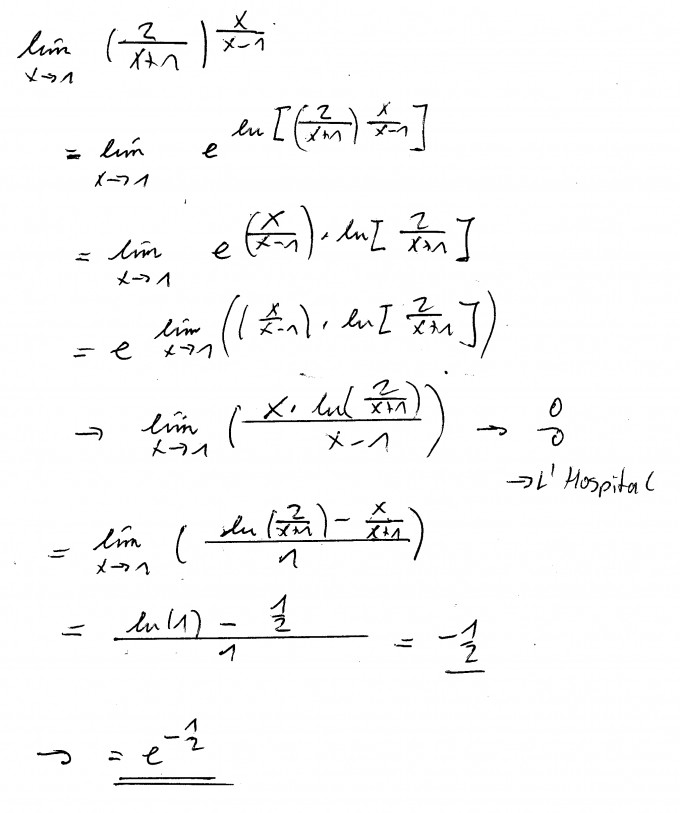 lim x→1 (2/(x+1))^(x/(x-1))
= lim x→1 e^(ln[(2/(x+1))^(x/(x-1))])
= lim x→1 e^((x/(x-1)) · ln[2/(x+1)])
= e^(lim x→1 ((x/(x-1)) · ln[2/(x+1)]))
→ lim x→1 ((x · ln(2/(x+1)))/(x-1)) → 0/0
→ L' Hospital
= lim x→1 ((ln(2/(x+1)) - x/(x+1))/1)
= (ln(1) - 1/2)/1 = -1/2
→ = e^(-1/2)